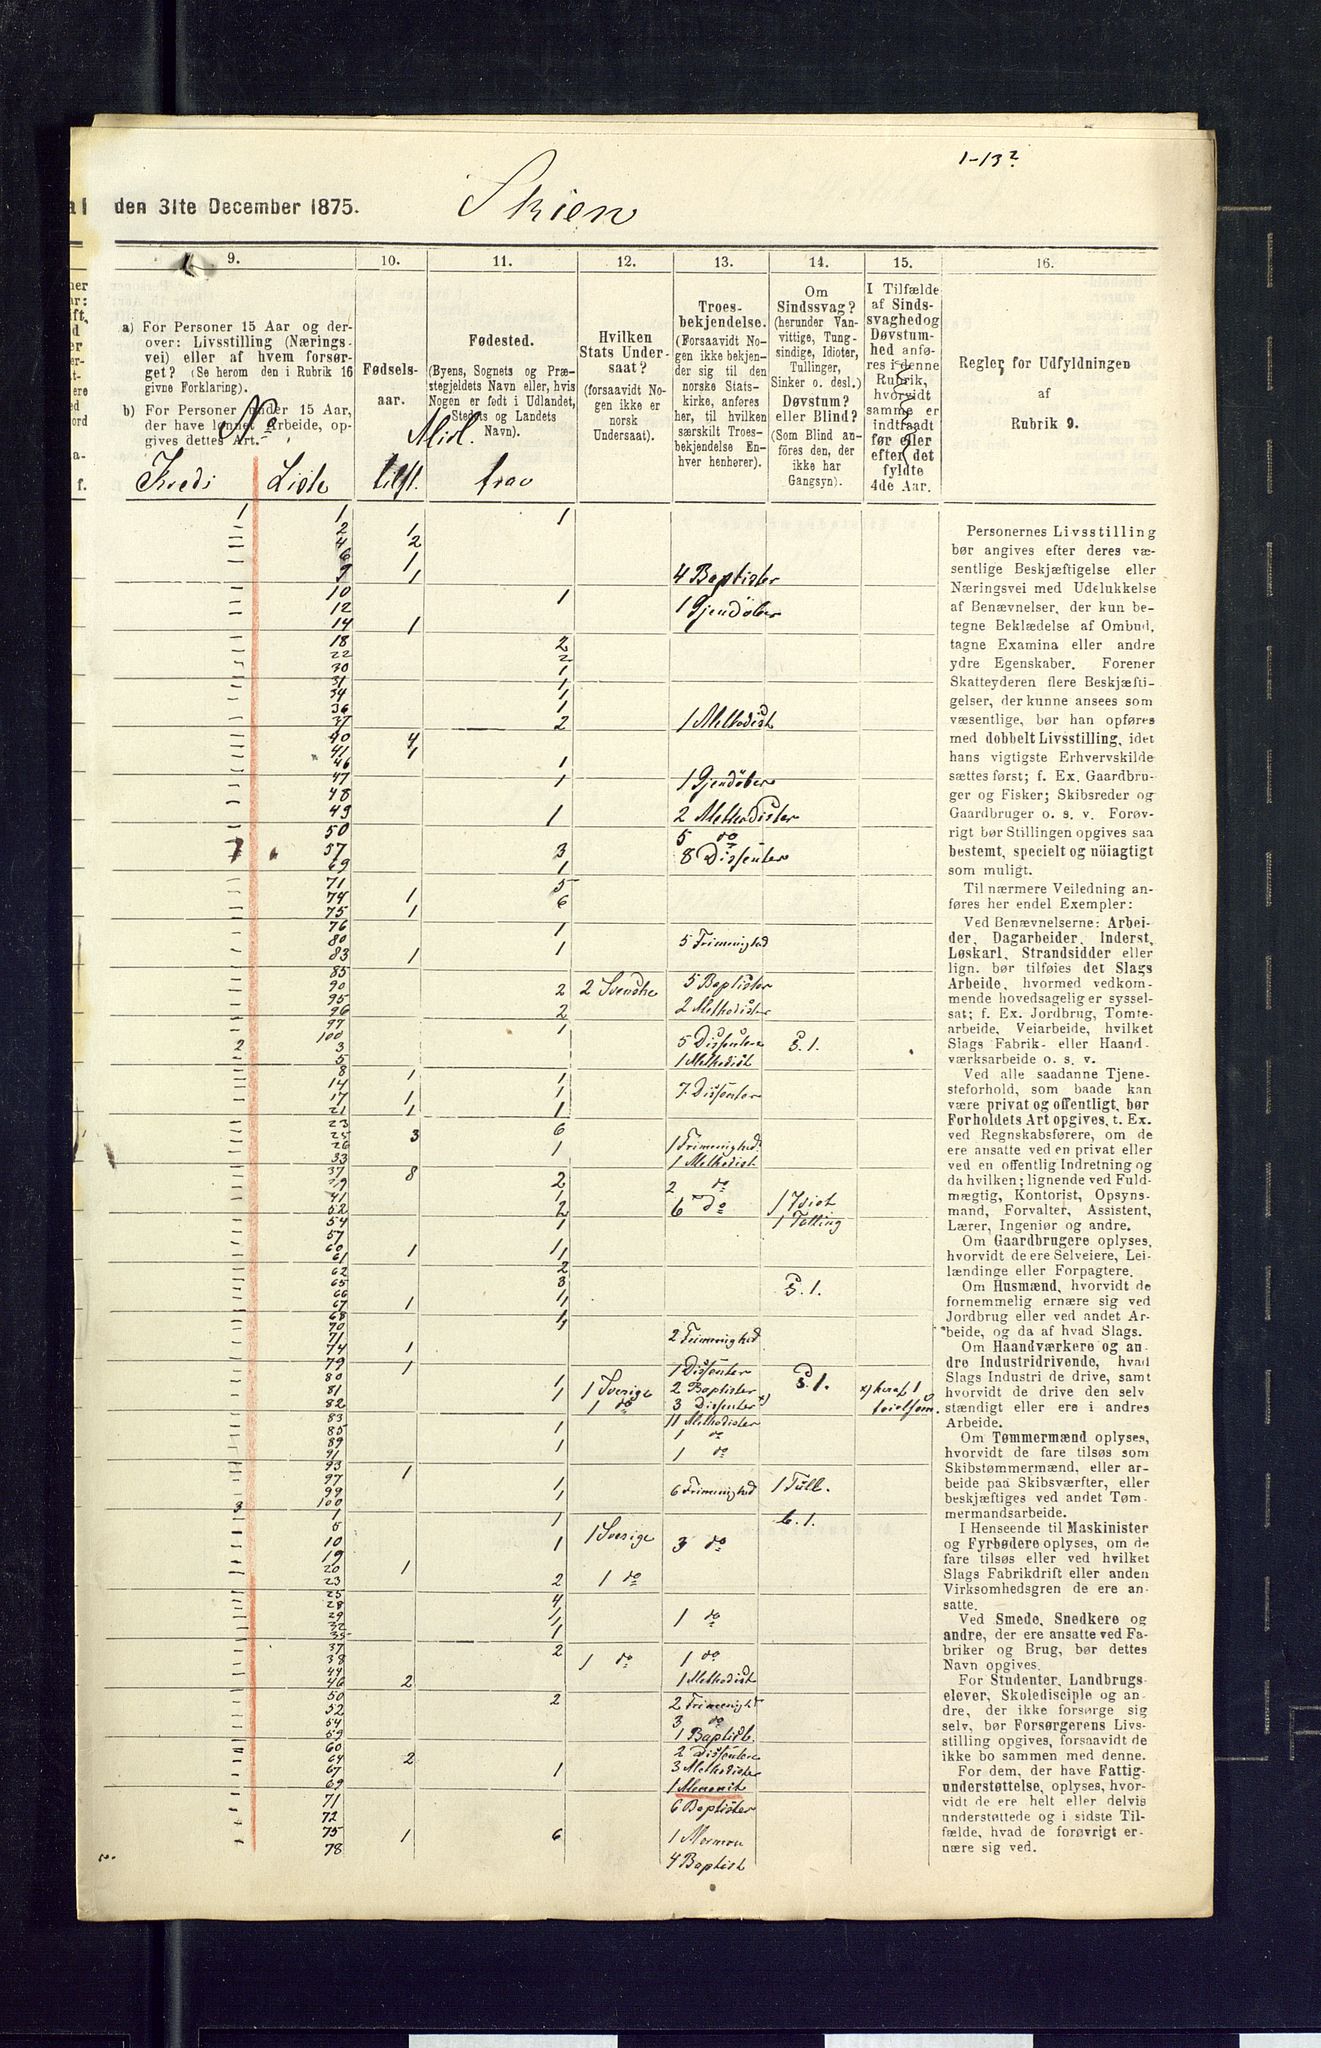 1-13²
den 31te December 1875.
Skien
9.
10.
11.
12.
13.
14.
15.
16.
a) For Personer 15 Aar og der-
over: Livsstilling (Nærings-
vei) eller af hvem forsør-
get? (Se herom den i Rubrik 16
givne Forklaring).
b) For Personer under 15 Aar,
der have lønnet Arbeide, op-
gives dettes Art.
Fødsels-
aar.
Fødested.
(Byens, Sognets og Præ-
stegjeldets Navn eller, hvis
Nogen er født i Udlandet,
Stedets og Landets
Navn).
Hvilken
Stats Under-
saat?
(forsaavidt No-
gen ikke er
norsk
Undersaat).
Troes-
bekjendelse.
(Forsaavidt No-
gen ikke bekjen-
der sig til den
norske Stats-
kirke, anføres
her, til hvilken
særskilt Troes-
bekjendelse En-
hver henhører).
Om
Sindssvag?
(herunder Van-
vittige, Tung-
sindige, Idioter,
Tullinger,
Sinker o. desl.)
Døvstum?
eller Blind?
(Som Blind an-
föres den, der
ikke har
Gangsyn).
I Tilfælde
af Sinds-
svaghed og
Døvstum-
hed anfø-
res i denne
Rubrik,
hvorvidt
samme er
indtraadt
før eller
efter det
fyldte
4de Aar.
Regler for Udfyldningen
af
Rubrik 9.
No
Midl.
Kreds Liste tilst. frav
1 1 1
2 1
4 2
6 1
9 1 4 Baptister
10 1
12 1 Gjendøber
14 1
18 2
22 2
30 1
31 1
34 1
36 1
37 2 1 Methodist
40 4
41 1
46 1
47 1 1 Gjendøber
48
49 1 2 Methodister
50 5 do
57 3 8 Dissenter
69 1
71 5
74 1 6
75 1
76 1
80 1 5 Frimenighed
83 1
85
90 2 2 Svenske 5 Baptister
95 2 Methodister
96 2
97 1
100
2 3 5 Dissentere S. 1.
5 1 Methodist
8 1 1
14 1 7 Dissenter
17 1
21 1 1
23 6
25 3
26 1 1 Frimenighed.
33 1 Methodist.
37 8
39 2 2 do
41 1
52 2 6 do 1 Idiot
54 1 1 Tulling
57
60 1 1
61 1
62 2
65 3
66 1 S. 1.
67 1 1
68
70 1
71 2 Frimenighed
74 1
79 1 1 Dissenter
80 1 S. 1.
81 1 1 Sverige 2 Baptister
82 1 do 3 Dissenter x)
83 11 Methodister
85 1 1 do
89 1
91 1 do
93 1
97 1
99 1 6 Frimenighed 1 Tull.
3 100
1 1 b. 1.
5 1 Sverige
10 1 3 do
19
20 1
23 2 1 do
25 4
28 1
29 1 1 do
32 1
35
37 2
38 1 do 1 do
44
46 2 1 Methodist
50 2 2 Frimenighed
52
54 3 do
59 1 Baptist.
60 2 Dissentere
64 2
67 1 3 Methodister
69 1 Menonit
71
72 6 Baptister
75 1 6 1 Mormon
78 4 Baptist
Personernes Livsstilling
bør angives efter deres væ-
sentlige Beskjæftigelse eller
Næringsvei med Udelukkelse
af Benævnelser, der kun be-
tegne Beklædelse af Ombud,
tagne Examina eller andre
ydre Egenskaber. Forener
Skatteyderen flere Beskjæfti-
gelser, der kunne ansees som
væsentlige, bør han opføres
med dobbelt Livsstilling, idet
hans vigtigste Erhvervskilde
sættes først; f. Ex. Gaardbru-
ger og Fisker; Skibsreder og
Gaardbruger o. s. v. Forøv-
rigt bør Stillingen opgives saa
bestemt, specielt og nöiagtigt
som muligt.
Til nærmere Veiledning an-
føres her endel Exempler:
Ved Benævnelserne: Arbei-
der, Dagarbeider, Inderst,
Løskarl, Strandsidder eller
lign. bør tilføies det Slags
Arbeide, hvormed vedkom-
mende hovedsagelig er syssel-
sat; f. Ex. Jordbrug, Tomte-
arbeide, Veiarbeide, hvilket
Slags Fabrik- eller Haand-
værksarbeide o. s. v.
Ved alle saadanne Tjene-
steforhold, som baade kan
være privat og offentligt, bør
Forholdets Art opgives, t. Ex.
ved Regnskabsførere, om de
ere ansatte ved en privat eller
ved en offentlig Indretning og
da hvilken; lignende ved Fuld-
mægtig, Kontorist, Opsyns-
mand, Forvalter, Assistent,
Lærer, Ingeniør og andre.
Om Gaardbrugere oplyses,
hvorvidt de ere Selveiere, Lei-
lændinge eller Forpagtere.
Om Husmænd, hvorvidt de
fornemmelig ernære sig ved
Jordbrug eller ved andet Ar-
beide, og da af hvad Slags.
Om Haandværkere og an-
dre Industridrivende, hvad
Slags Industri de drive, samt
hvorvidt de drive den selv-
stændigt eller ere i andres
Arbeide.
Om Tømmermænd oplyses,
hvorvidt de fare tilsøs som
Skibstømmermænd, eller ar-
beide paa Skibsværfter, eller
beskjæftiges ved andet Tøm-
mermandsarbeide.
I Henseende til Maskinister
og Fyrbødere oplyses, om de
fare tilsøs eller ved hvilket
Slags Fabrikdrift eller anden
Virksomhedsgren de ere an-
satte.
Ved Smede, Snedkere og
andre, der ere ansatte ved Fa-
briker og Brug, bør dettes
Navn opgives.
For Studenter, Landbrugs-
elever, Skoledisciple og an-
dre, der ikke forsørge sig
selv, bør Forsørgerens Livs-
stilling opgives, forsaavidt de
ikke bo sammen med denne.
For dem, der have Fattig-
understøttelse, oplyses, hvor-
vidt de ere helt eller delvis
understøttede og i sidste Til-
fælde, hvad de forøvrigt er-
nære sig ved.